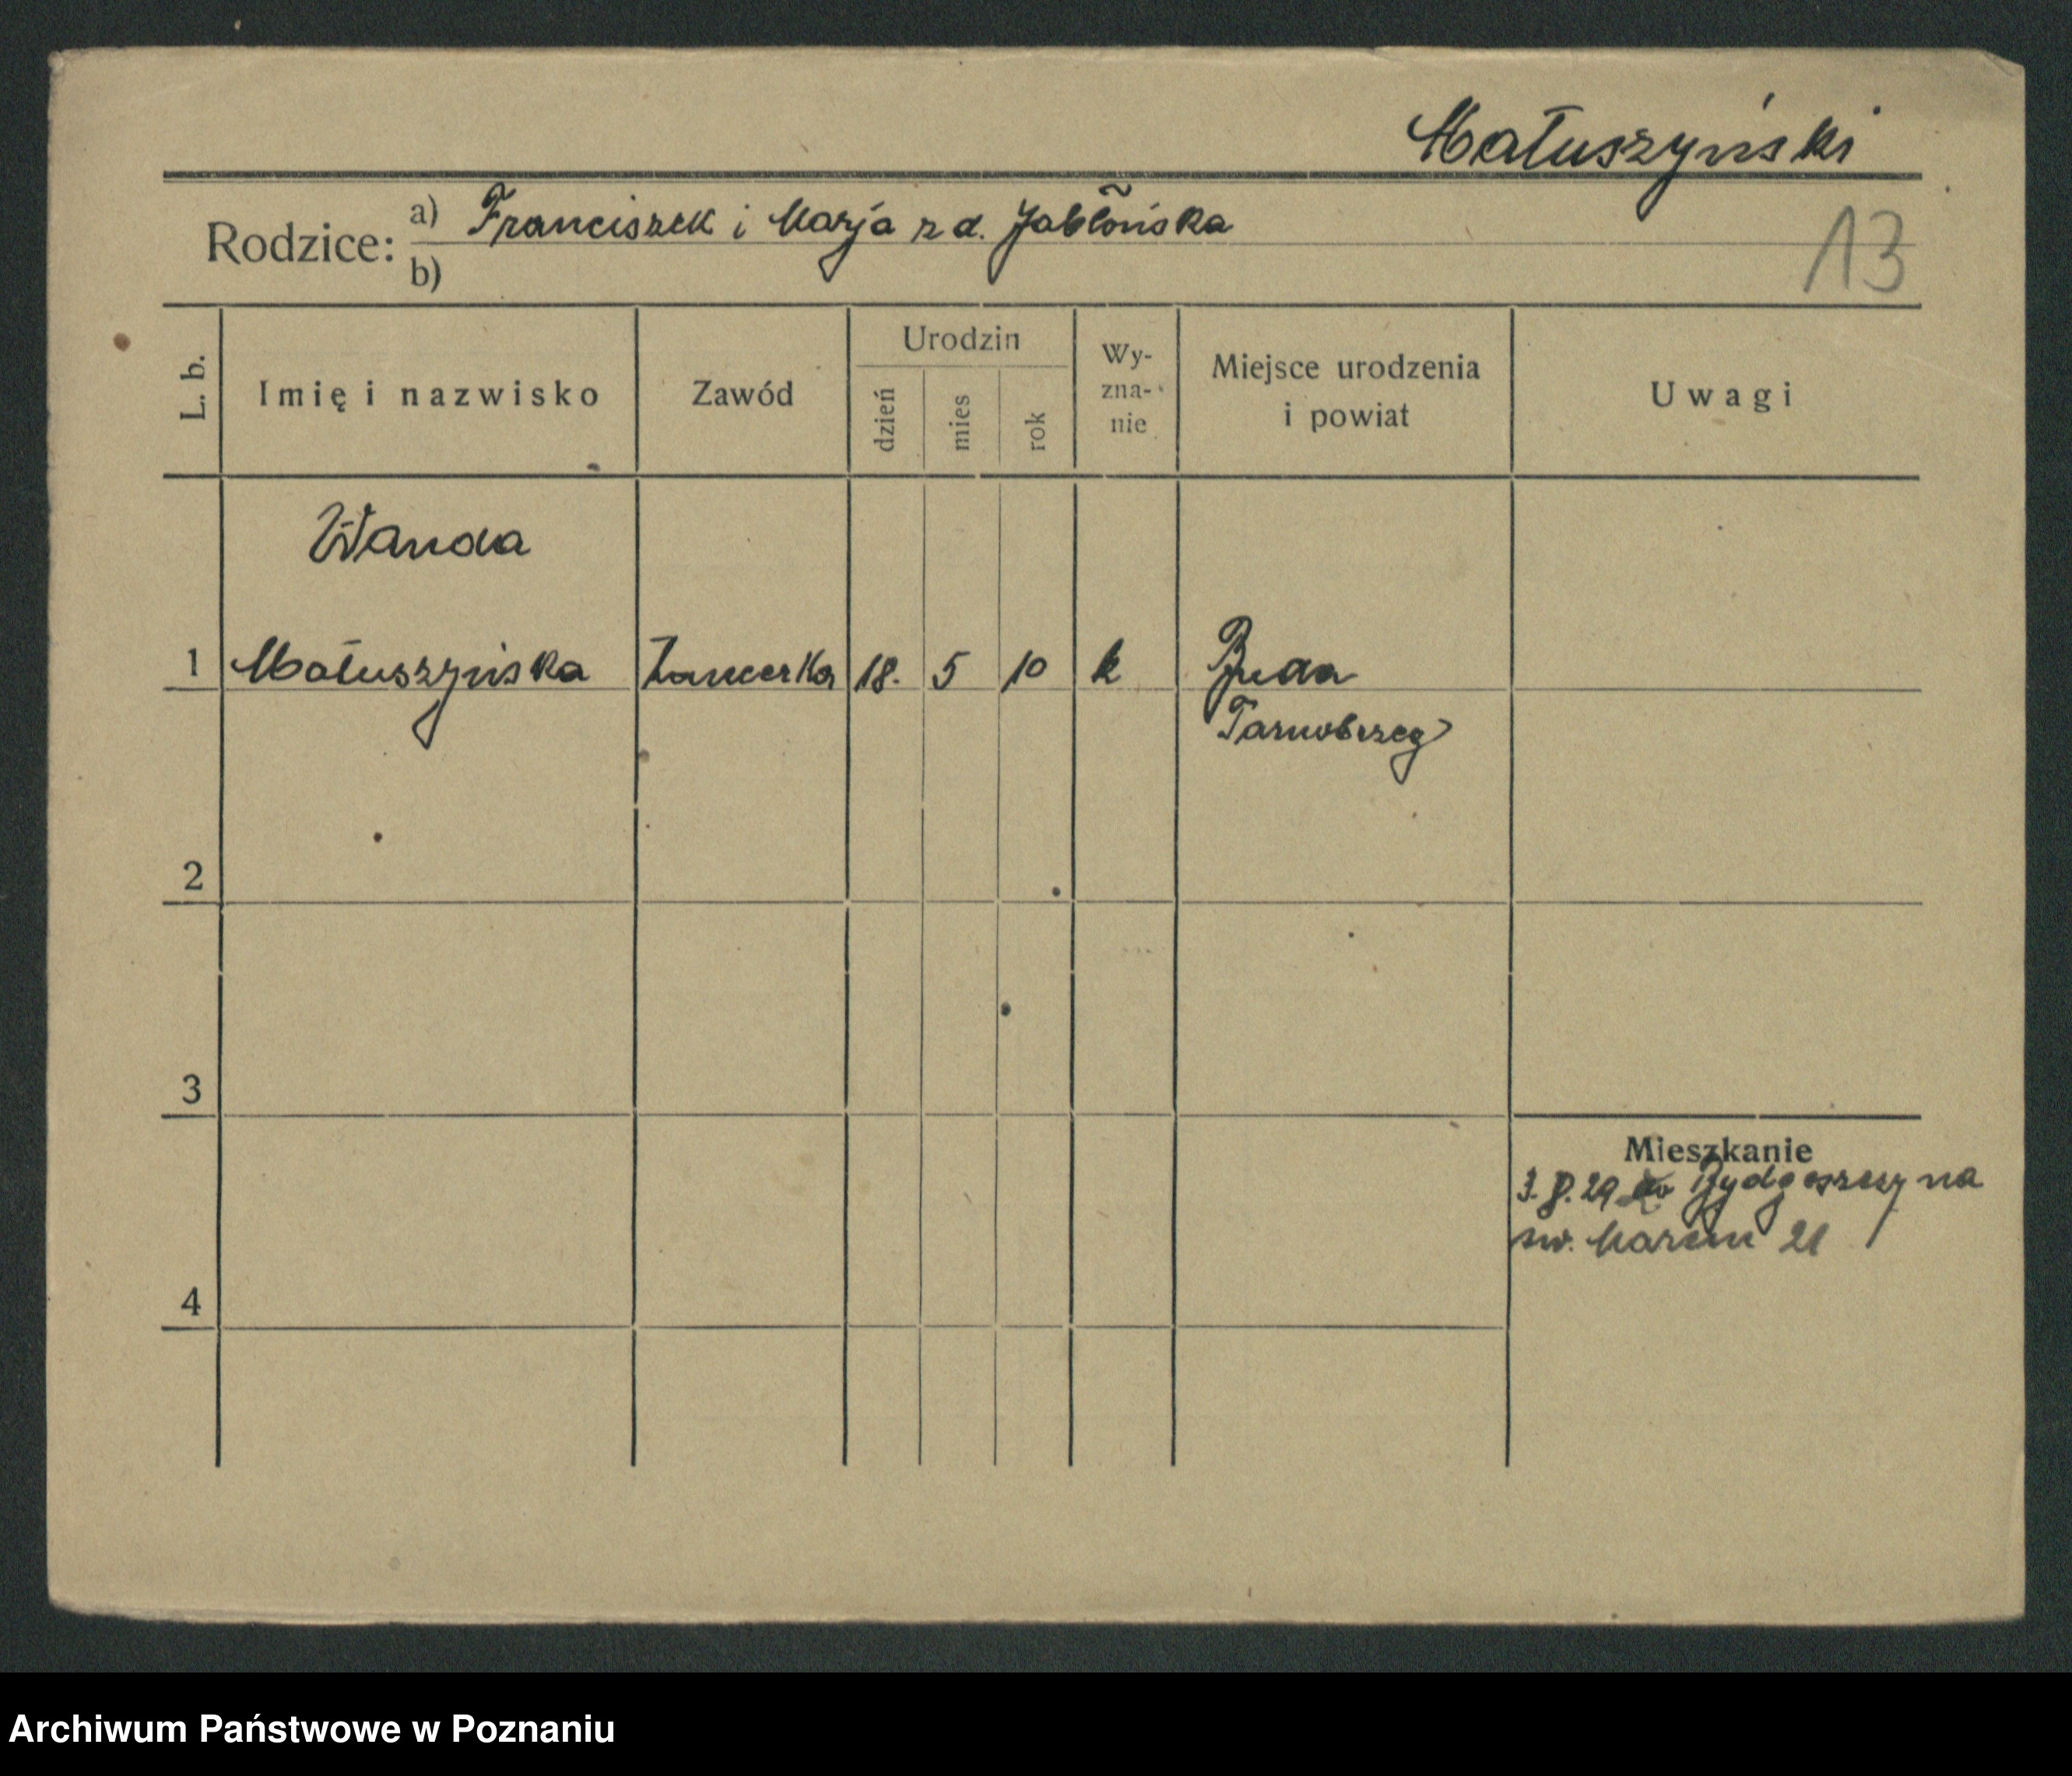 Małuszyński
Rodzice: a) Franciszek i Marja z d. Jabłońska
b)
13
L. b. Imię i nazwisko Zawód Urodzin dzień mies rok Wy-zna-nie Miejsce urodzenia i powiat Uwagi
Wanda
1 Małuszyńska Tancerka 18. 5 10 k Buda
Tarnobrzeg
2
3
Mieszkanie
3.8.29 Bydgoszczy na
św. Marcin 21
4
Archiwum Państwowe w Poznaniu